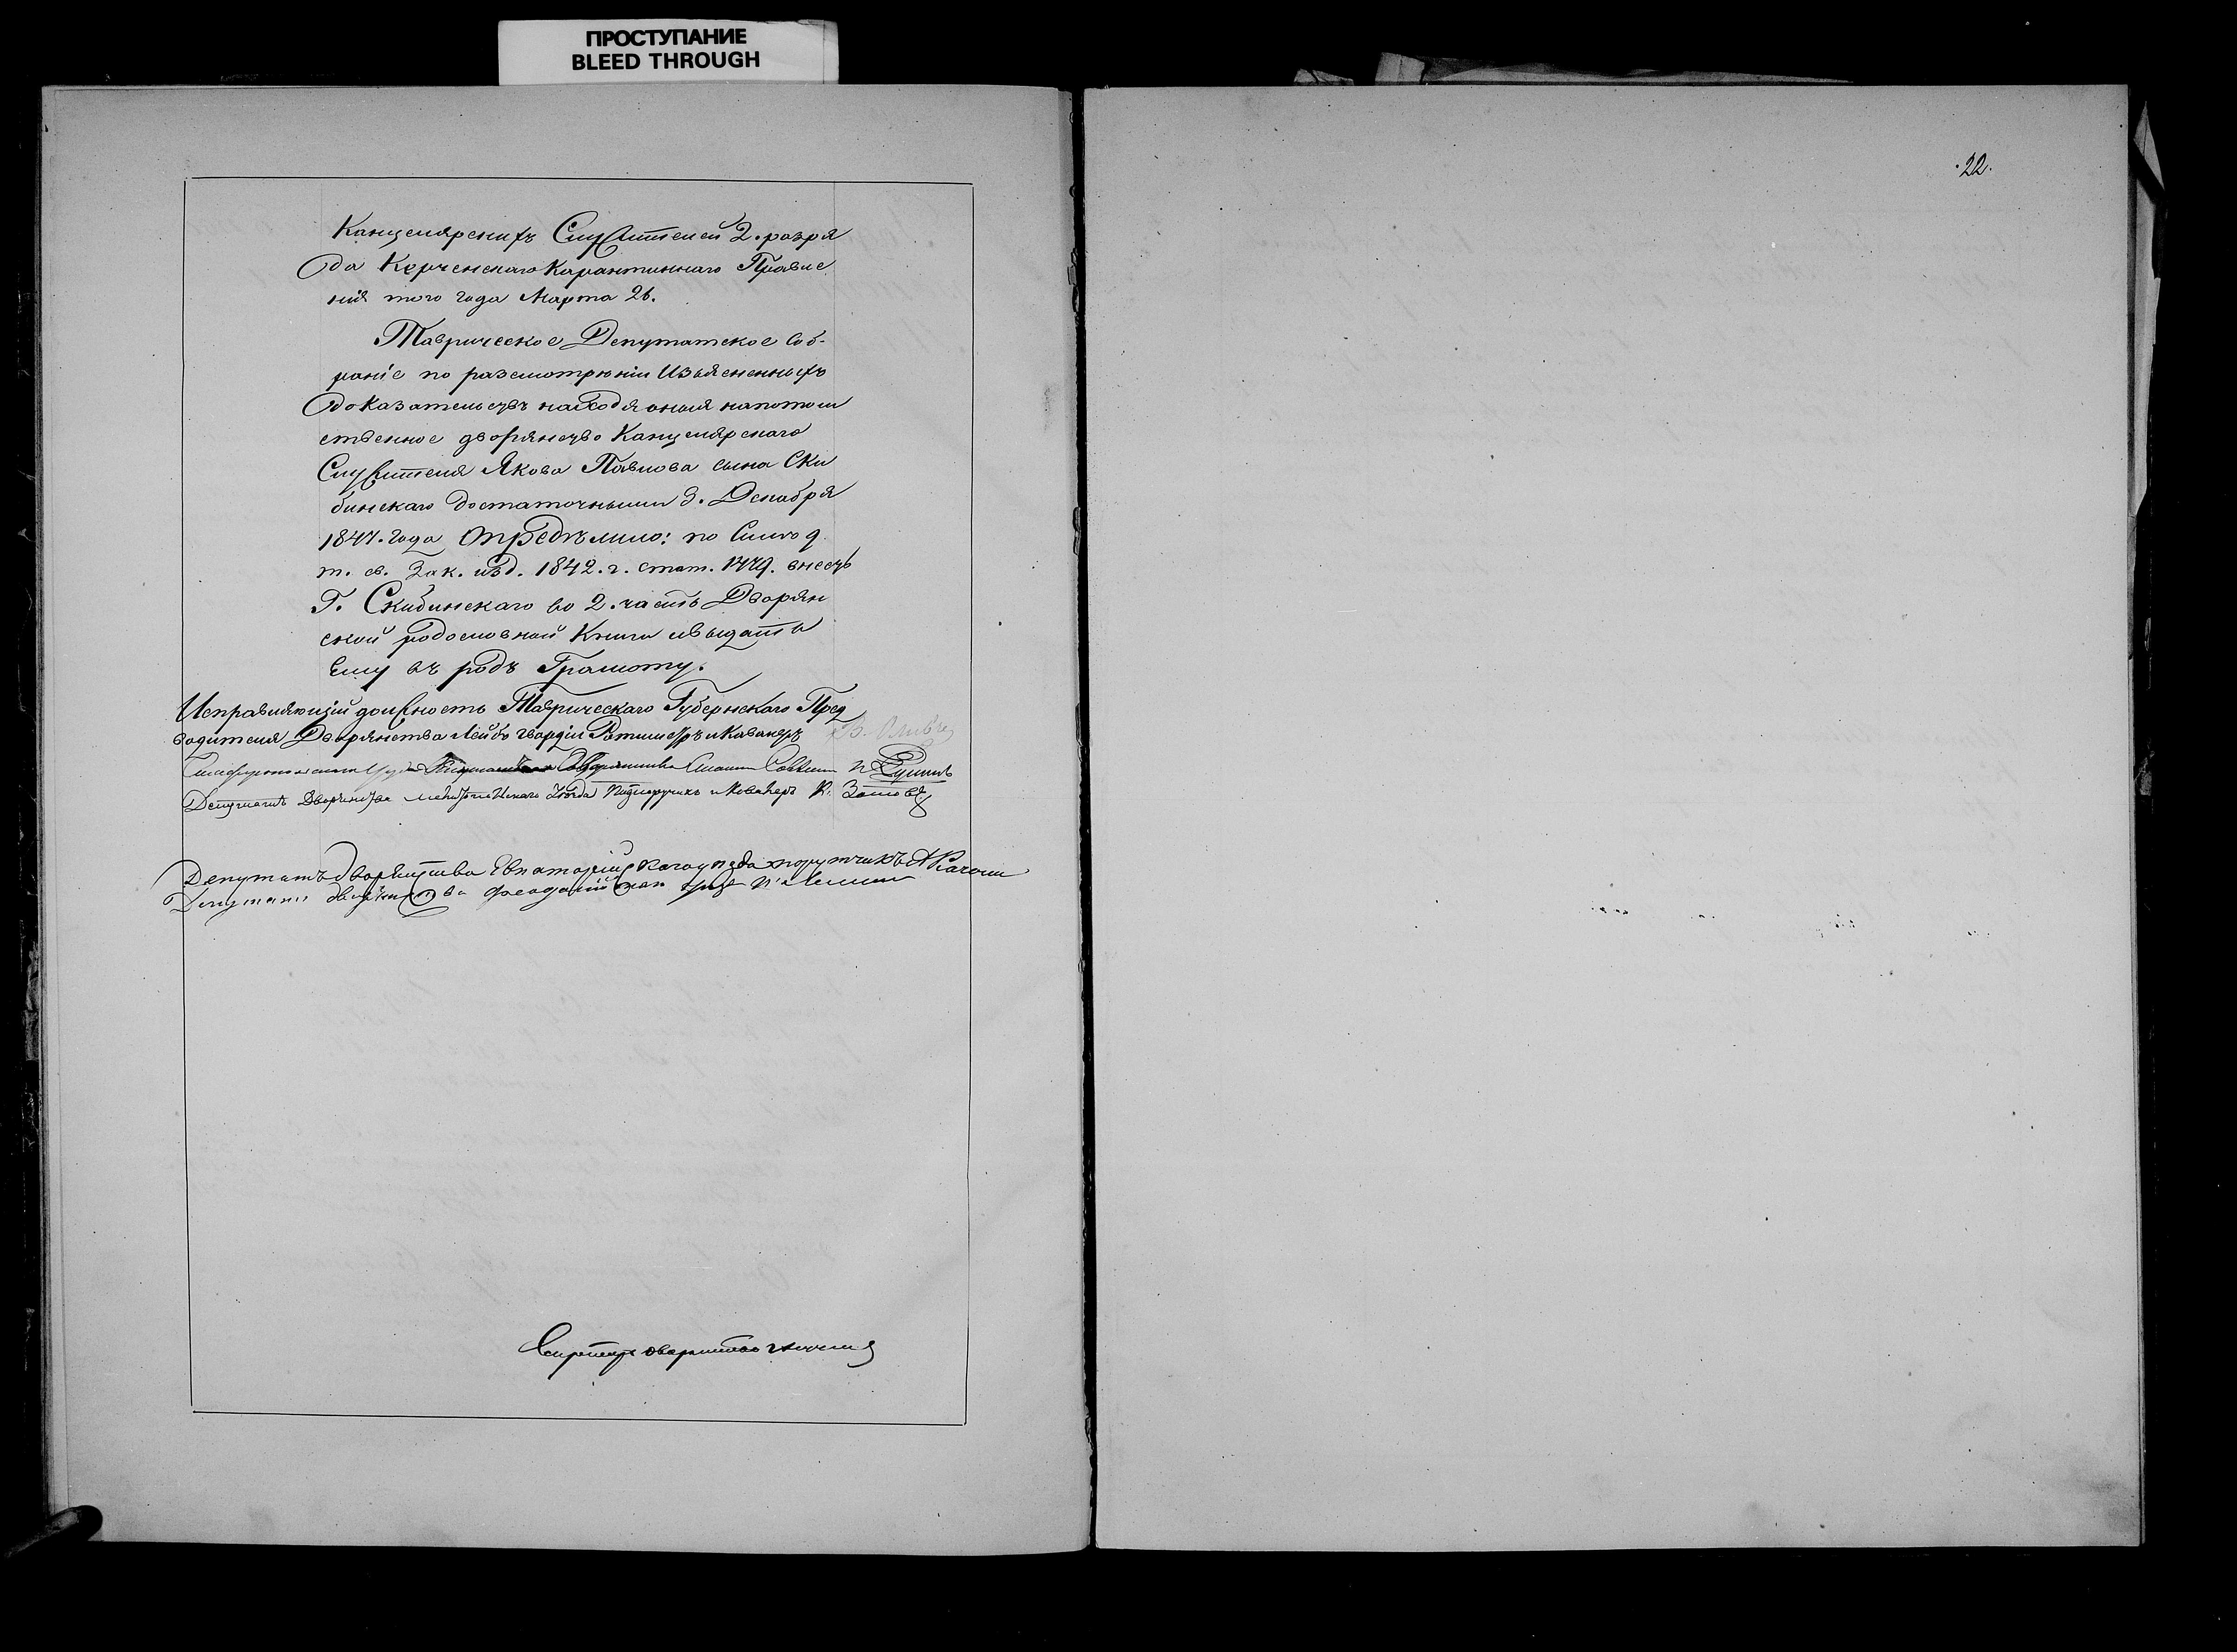 ПРОСТУПАНИЕ
BLEED THROUGH
22.
Канцелярскихъ Служителей 2. разря
да Керченскаго Карантиннаго Правле
нія того года Марта 26.
Таврическое Депутатское Соб-
раніе по разсмотрѣніи Изъясненныхъ
доказательствъ находя оныя на потом
ственное дворянство Канцелярскаго
Служителя Якова Павлова сына Ски
бинскаго достаточными 3. Декабря
1847. года Опредѣлило: по Силѣ 9
т. св. Зак. изд. 1842. г. стат. 1479. внесть
Г. Скибинскаго во 2. часть Дворян
ской родословной Книги и выдать
Ему въ родъ Грамоту.
Исправляющій должность Таврическаго Губернскаго Пред
водителя Дворянства Лейбъ гвардіи Ротмистръ и Кавалеръ
Депутатъ Дворянства Мелитопольскаго Уѣзда Подпоручикъ и Кавалеръ К. Зотовъ
Депутатъ дворянства Евпаторійскаго уѣзда поручикъ А Качони
Депутатъ дворянства Феодосійскаго
Секретарь дворянства